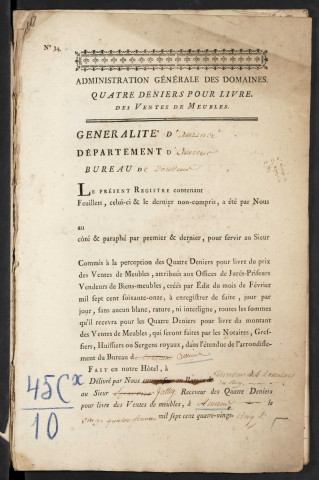 N° 34.
ADMINISTRATION GÉNÉRALE DES DOMAINES.
QUATRE DENIERS POUR LIVRE,
DES VENTES DE MEUBLES.
GENERALITÉ D'
DÉPARTEMENT D'
BUREAU DE
LE PRÉSENT REGISTRE contenant
Feuillets, celui-ci & le dernier non-compris, a été par Nous
au
côté & paraphé par premier & dernier, pour servir au Sieur
Commis à la perception des Quatre Deniers pour livre du prix
des Ventes de Meubles, attribués aux Offices de Jurés-Priseurs
Vendeurs de Biens-meubles, créés par Edit du mois de Février
mil sept cent soixante-onze, à enregistrer de suite, jour par
jour, sans aucun blanc, rature, ni interligne, toutes les sommes
qu'il recevra pour les Quatre Deniers pour livre du montant
des Ventes de Meubles, qui seront faites par les Notaires, Gref-
fiers, Huissiers ou Sergens royaux, dans l'étendue de l'arrondisse-
ment du Bureau de
FAIT en notre Hôtel, à
Délivré par Nous
au Sieur Receveur des Quatre Deniers
pour livre des Ventes de meubles, à le
mil sept cent quatre-vingt
45C^x
10